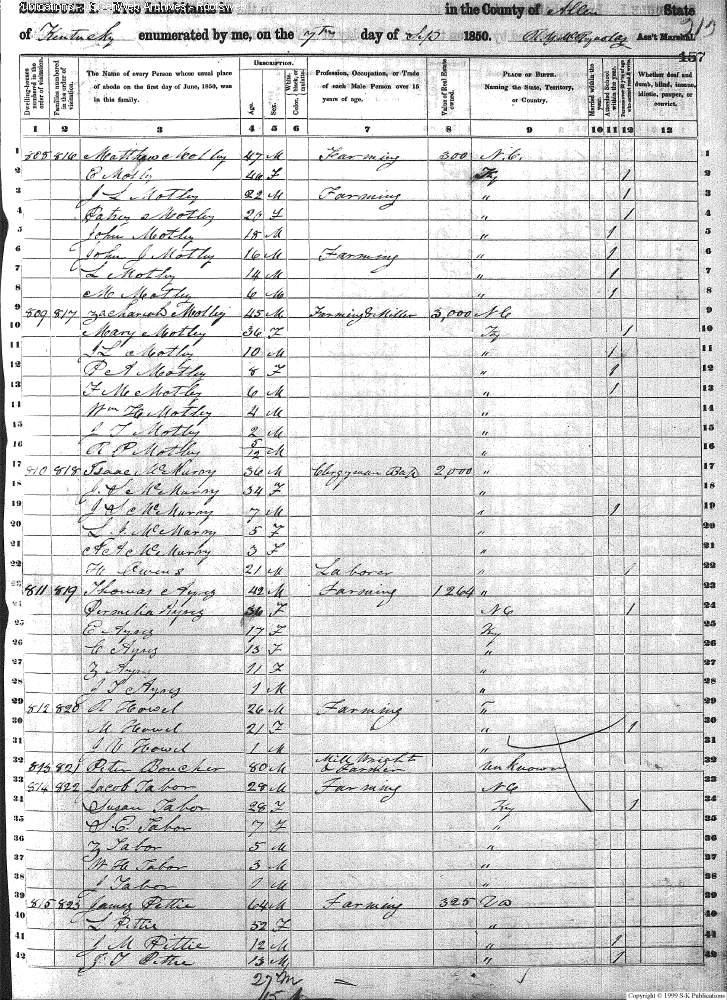 in the County of Allen State
of Kentucky enumerated by me, on the 7th day of Sep 1850. Ass't Marshal.
157
Dwelling-houses numbered in the order of visitation.
Families numbered in the order of visitation.
The Name of every Person whose usual place of abode on the first day of June, 1850, was in this family.
DESCRIPTION.
Age.
Sex.
White, black, or mulatto.
Color,
Profession, Occupation, or Trade of each Male Person over 15 years of age.
Value of Real Estate owned.
PLACE OF BIRTH. Naming the State, Territory, or Country.
Married within the year.
Attended School within the year.
Whether deaf and dumb, blind, insane, idiotic, pauper, or convict.
1 2 3 4 5 6 7 8 9 10 11 12 13
1 816 Matthew Motley 47 M Farming 300 N.C. 1
2 E Motly F Ky 1 2
3 J L Motley 22 M Farming " 1 3
4 Motley 20 F " 1 4
5 John Motley 18 M " 1 5
6 John J Motley 16 M Farming " 1 6
7 L Motley 14 M " 1 7
8 M Motley 6 M " 1 8
9 809 817 Zachariah Motley 45 M Farming & Miller 3,000 N C 9
10 Mary Motley 36 F Ky 1 10
11 Motley 10 M " 1 11
12 P A Motley 8 F " 1 12
13 F M Motley 6 M " 1 13
14 Wm H Motley 4 M " 14
15 J T Motley 2 M " 15
16 R P Motley 5/12 M " 16
17 810 818 Isaac McMurry 36 M Clergyman Bap 2,000 " 17
18 J. S McMurry 34 F " 18
19 J S McMurry 7 M " 1 19
20 L J. McMurry 5 F " 20
21 A McMurry 3 F " 21
22 H Owens 21 M Laborer " 1 22
23 811 819 Thomas Ayrez 42 M Farming 1264 " 23
24 Permelia Ayrez 36 F N C 1 24
25 E Ayrez 17 F Ky 25
26 C Ayrez 13 F " 26
27 Z Ayrez 11 F " 27
28 J T Ayrez 1 M " 28
29 812 820 R Howel 26 M Farming 29
30 M Howel 21 F " 1 30
31 J W Howel 1 M " 31
32 813 821 Peter Boucher 80 M Mill Wright & Farmer unknown 32
33 814 822 Jacob Tabor 28 M Farming N C 33
34 Susan Tabor 28 F Ky 1 34
35 S. E. Tabor 7 F " 35
36 Z Tabor 5 M " 36
37 W H Tabor 3 M " 37
38 J Tabor 1 M " 38
39 815 823 James Pettie 64 M Farming 325 Va 39
40 L Pettie 52 F " 40
41 J M Pittie 12 M " 1 41
42 J. T Pettie 13 M " 1 42
27 M
15
Copyright © 1999 S-K Publications